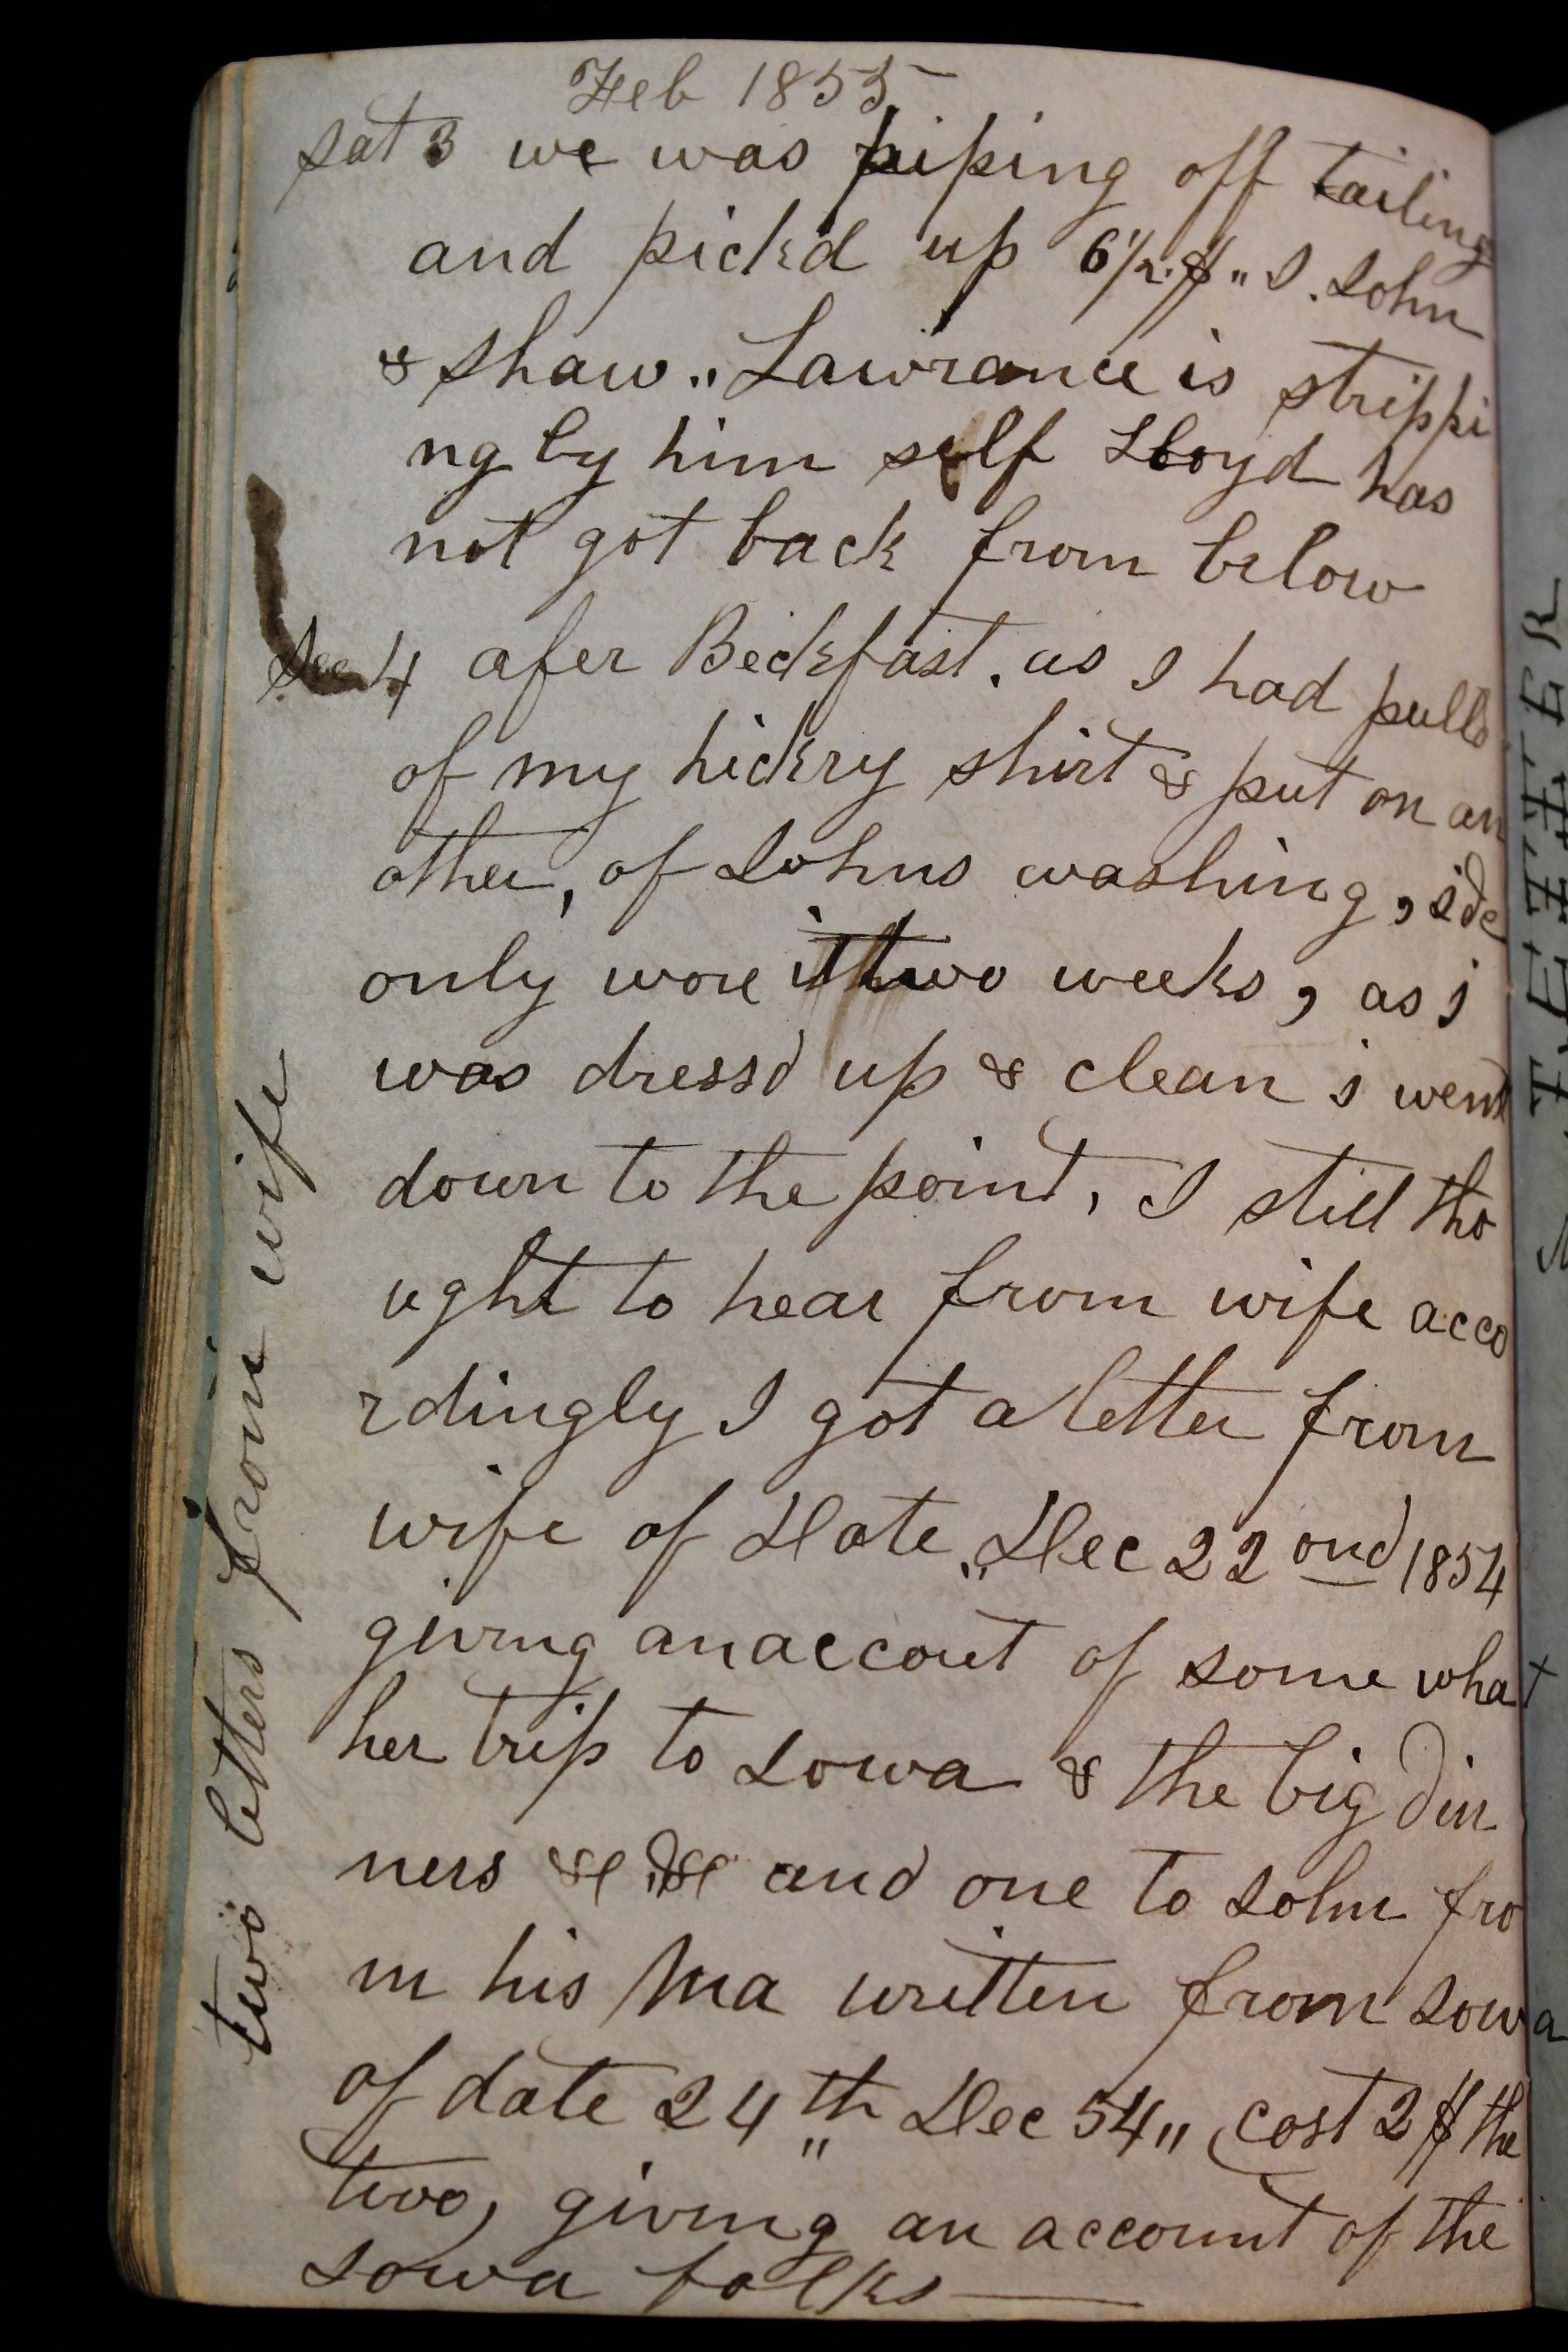 Feb 1855
sat 3 we was piping off tailing
and pick'd up 6 1/2 $ " I. John
& Shaw " Lawrance is strippi
ng by him self Lloyd has
not got back from below
4 afer Beckfast. as I had pulld
of my hickry shirt & put on an
other, of Johns washing,
only wore it two weeks, as i
was dressd up & clean i went
down to the point, I still tho
ught to hear from wife acco
rdingly I got a letter from
wife of Date " Dec 22 ond 1854
giving an accout of some what
her trip to Iowa & the big din
ners &c &c and one to John fro
m his Ma written from Iowa
of date 24 th Dec 54 " cost 2 $ the
two, giving an account of the
Iowa folks
two letters from wife
TETTER